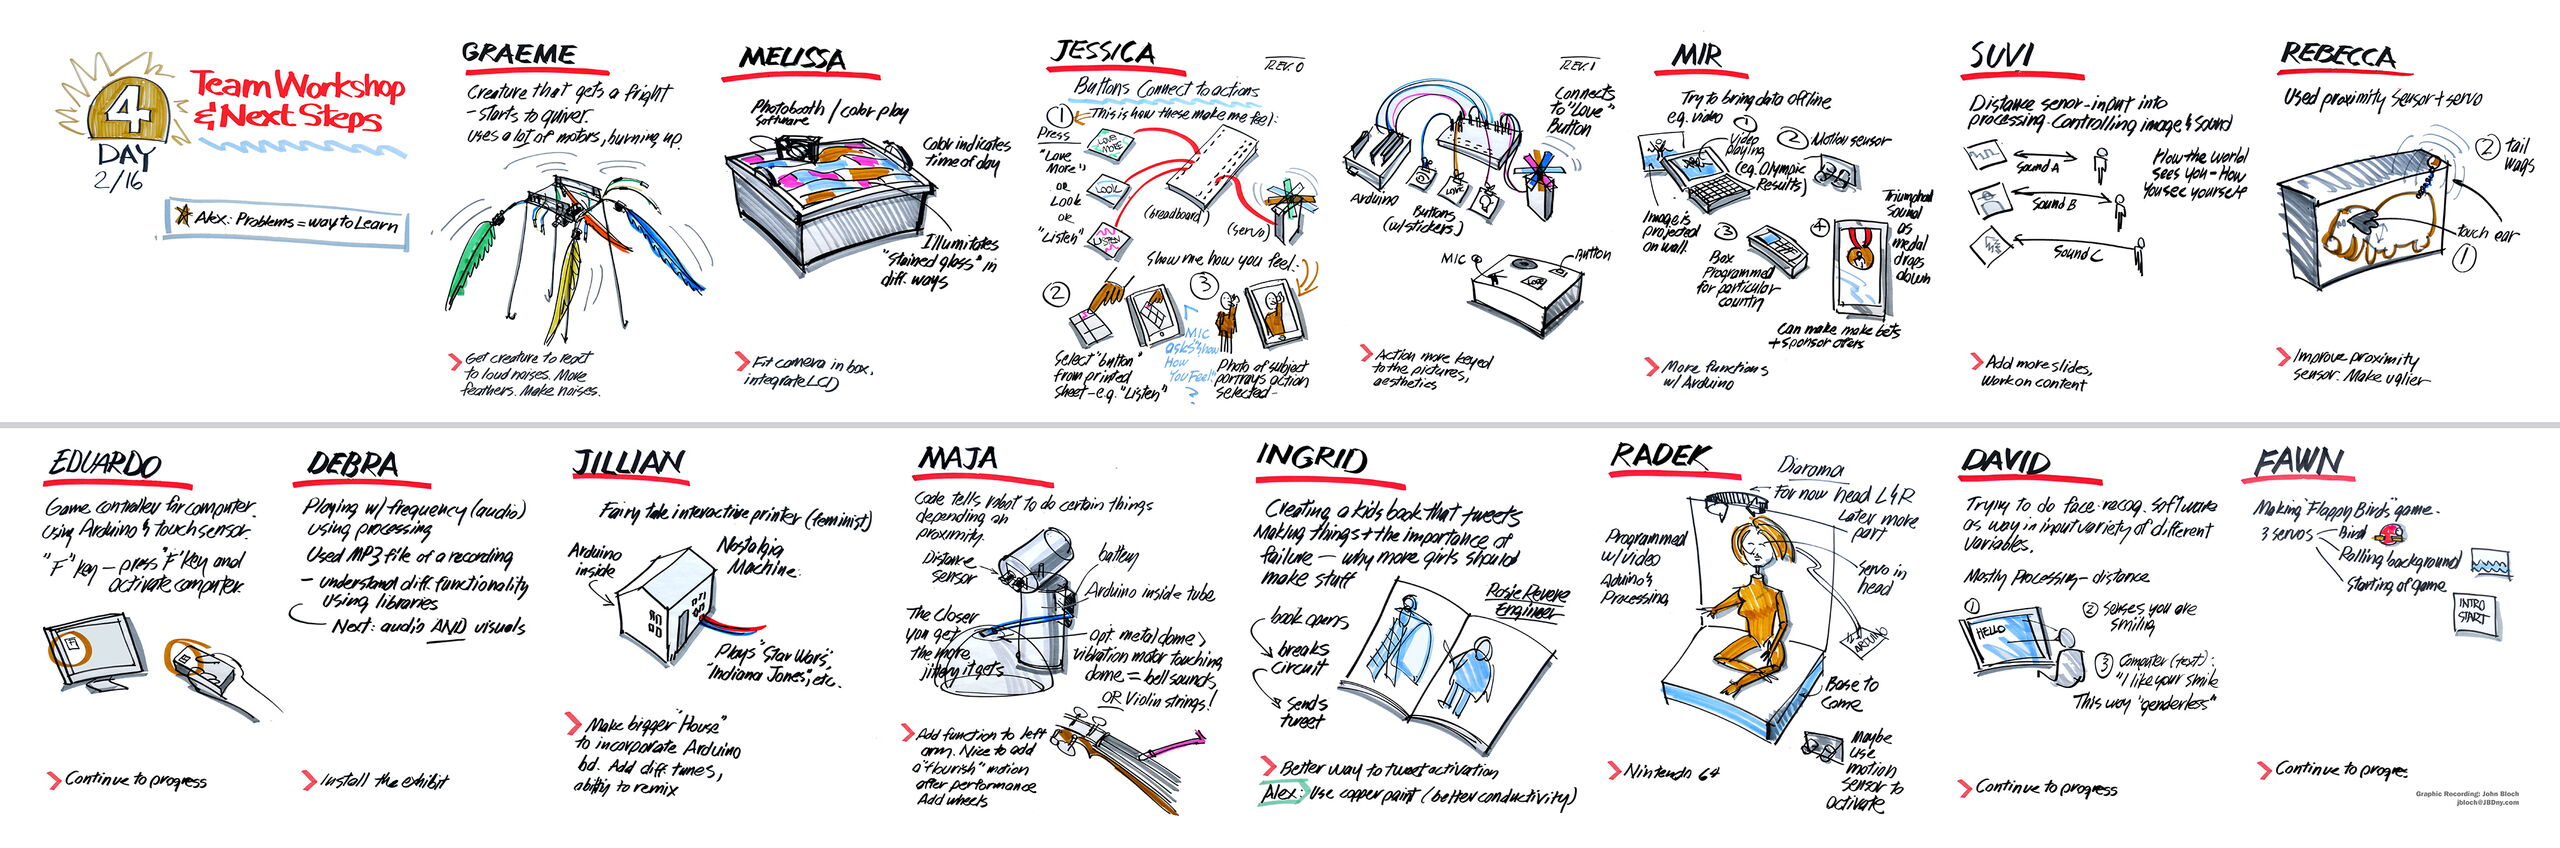 4
DAY
2/16
Team Workshop
& Next Steps
Alex: Problems = way to Learn
GRAEME
Creature that gets a fright
- starts to quiver.
uses a lot of motors, burning up.
Get creature to react
to loud noises. More
feathers. Make noises.
MELISSA
Photobooth / color play
software
Color indicates
time of day
Illumitates
"stained glass" in
diff. ways
Fit camera in box,
integrate LCD
JESSICA
REV. 0
Buttons Connect to actions
1
This is how these make me feel:
Press
"Love
More"
OR
Look
OR
"Listen"
LOVE
MORE
LOOK
LISTEN
(breadboard)
(servo)
Show me how you feel:
2
3
Select "button"
from printed
sheet - e.g. "Listen"
MIC
asks "show
How
You Feel"
?
Photo of subject
portrays action
selected -
REV. 1
Connects
to "Love"
Button
Arduino
Buttons
(w/stickers)
LOVE
MIC
Button
LOVE
Action more keyed
to the pictures,
aesthetics
MIR
Try to bring data offline
e.g. video
1
Video
playing
(e.g. Olympic
Results)
2
Motion sensor
Image is
projected
on wall.
3
Box
Programmed
for particular
country
4
Triumphal
sound
as
medal
drops
down
Can make make bets
+ sponsor offers
More functions
w/ Arduino
SUVI
Distance senor - input into
processing. Controlling image & sound
Sound A
Sound B
Sound C
How the world
sees you - How
you see yourself
Add more slides,
work on content
REBECCA
Used proximity sensor + servo
2 tail
wags
touch ear
1
Improve proximity
sensor. Make uglier
EDUARDO
Game controller for computer.
Using Arduino & touch sensor.
"F" key - press "F" key and
activate computer.
Continue to progress
DEBRA
Playing w/ frequency (audio)
using processing
Used MP3 file of a recording
- understand diff. functionality
using libraries
Next: audio AND visuals
Install the exhibit
JILLIAN
Fairy tale interactive printer (feminist)
Arduino
inside
Nostalgia
Machine.
Plays "Star Wars",
"Indiana Jones", etc.
Make bigger "House"
to incorporate Arduino
bd. Add diff. tunes,
ability to remix
MAJA
Code tells robot to do certain things
depending on
proximity.
Distance
sensor
battery
Arduino inside tube
The Closer
you get
the more
jittery it gets
opt. metal dome,
vibration motor touching
dome = bell sounds
OR Violin strings!
Add function to left
arm. Nice to add
a "flourish" motion
after performance
Add wheels
INGRID
Creating a kids book that tweets
Making things + the importance of
failure - why more girls should
make stuff
book opens
breaks
circuit
sends
tweet
Rosie Revere
Engineer
Better way to tweet activation
Alex: Use copper paint (better conductivity)
RADEK
Diorama
For now head L&R
Later more
part
Programmed
w/ video
Arduino &
Processing
Servo in
head
ARDUINO
Base to
Come
Maybe
use
motion
sensor to
activate
Nintendo 64
DAVID
Trying to do face-recog. software
as way in input variety of different
variables.
Mostly Processing - distance
1
HELLO
2 Senses you are
smiling
3 Computer (text):
"I like your smile
This way "genderless"
Continue to progress
FAWN
Making "Flappy Birds" game.
3 servos
Bird
Rolling background
Starting of game
INTRO
START
Continue to progre
Graphic Recording: John Bloch
jbloch@JBDny.com